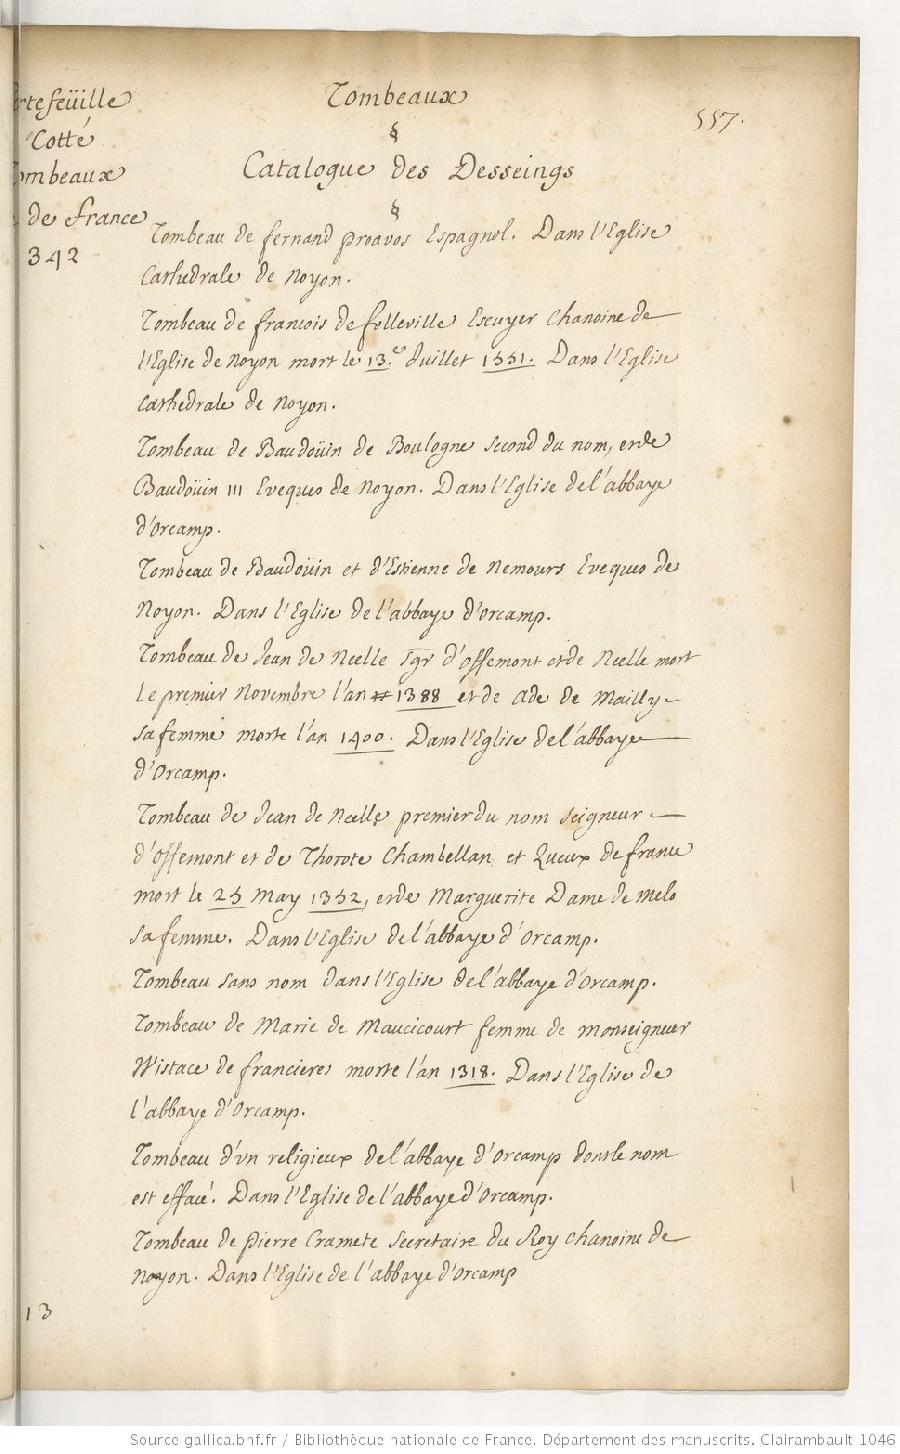 rtefeüille
Cotté
ombeaux
de france
342
Tombeaux
557.
§
Catalogue des Desseings
§
Tombeau de fernand proavos Espagnol. Dans l'Eglise
Cathedrale de Noyon.
Tombeau de francois de folleville Escuyer Chanoine de
l'Eglise de Noyon mort le 13.e Juillet 1551. Dans l'Eglise
Cathedrale de Noyon.
Tombeau de Baudoüin de Boulogne second du nom, et de
Baudoüin III Eveques de Noyon. Dans l'Eglise de l'abbaye
d'Orcamp.
Tombeau de Baudoüin et d'Estienne de Nemours Eveques de
Noyon. Dans l'Eglise de l'abbaye d'Orcamp.
Tombeau de Jean de Neelle Sgr d'Offemont et de Neelle mort
le premier Novembre l'an 1388 et de Ade de Mailly
sa femme morte l'an 1400. Dans l'Eglise de l'abbaye
d'Orcamp.
Tombeau de Jean de Neelle premier du nom seigneur
d'Offemont et de Thorote Chambellan et Queux de france
mort le 25 May 1352, et de Marguerite Dame de Melo
sa femme. Dans l'Eglise de l'abbaye d'Orcamp.
Tombeau sans nom dans l'Eglise de l'abbaye d'Orcamp.
Tombeau de Marie de Maucicourt femme de Monseigneur
Wistace de francieres morte l'an 1318. Dans l'Eglise de
l'abbaye d'Orcamp.
Tombeau d'un religieux de l'abbaye d'Orcamp dont le nom
est effacé. Dans l'Eglise de l'abbaye d'Orcamp.
Tombeau de pierre Cramete Secretaire du Roy Chanoine de
Noyon. Dans l'Eglise de l'abbaye d'Orcamp
13
Source gallica.bnf.fr / Bibliothèque nationale de France. Département des manuscrits. Clairambault 1046